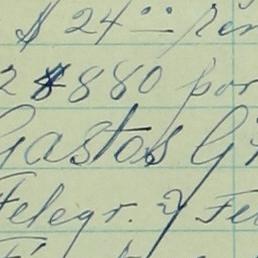 $ 24 00
2 $ 880 por
Gastos G
Telegr. y Fe